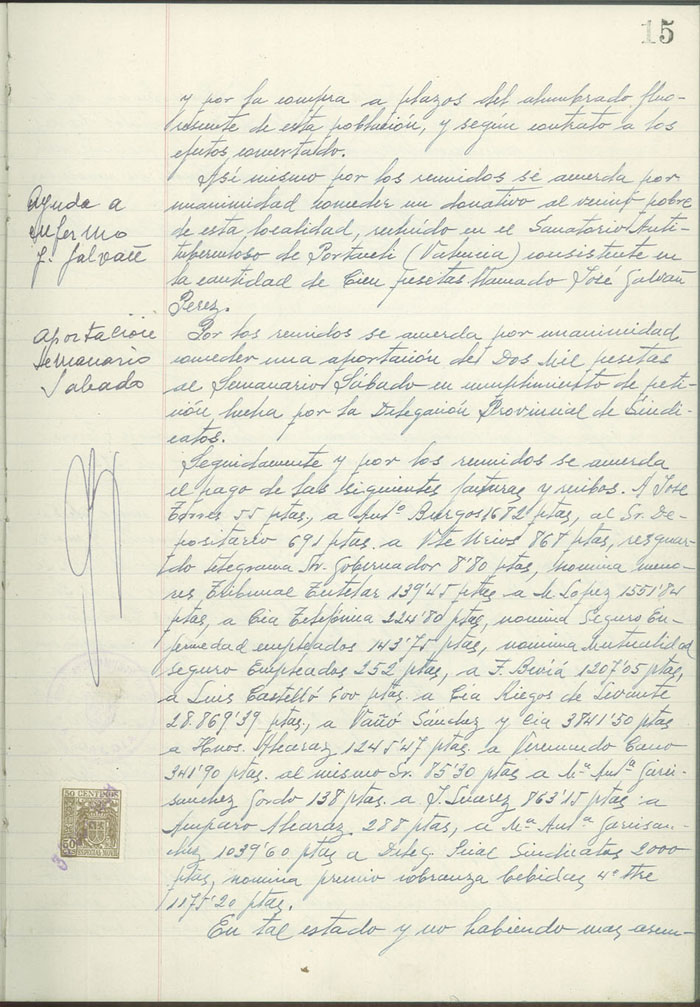 15
y por la compra a plazos del alumbrado fluo-
rescente de esta población, y según contrato a los
efectos concertado.
Ayuda a
enfermo
J. Galvañ
Asi mismo por los reunidos se acuerda por
unanimidad conceder un donativo al vecino pobre
de esta localidad, recluído en el Sanatorio Anti-
tuberculoso de Portaceli (Valencia) consistente en
la cantidad de Cien pesetas llamado José Galvañ
Perez.
Aportación
Semanario
Sabado
Por los reunidos se acuerda por unanimidad
conceder una aportación de Dos Mil pesetas
al Semanario Sábado en cumplimiento de peti-
ción hecha por la Delegación Provincial de Sindi-
catos.
Seguidamente y por los reunidos se acuerda
el pago de las siguientes facturas y recibos. A José
Torres 55 ptas., a Antº Burgos 1682 ptas, al Sr. De-
positario 691 ptas. a Vte 868 ptas, resguar-
do telegrama Sr. Gobernador 8'80 ptas, nomina meno-
res Tribunal Tutelar 139'45 ptas a M. Lopez 1551'84
ptas, a Cia Telefónica 224'80 ptas, nomina Seguro En-
fermedad empleados 143'75 ptas, nomina Mutualidad
seguro Empleados 252 ptas, a F. Beviá 1207'05 ptas,
a Luis Castelló 600 ptas. a Cia Riegos de Levante
28.869'39 ptas., a Vañó Sánchez y Cia 3841'50 ptas
a Hnos. Alcaraz 1245'47 ptas. a Veremundo Cano
341'90 ptas. al mismo Sr. 85'30 ptas a Mª Antª Garri-
sanchez Gordo 138 ptas. a J. Suarez 863'15 ptas. a
Amparo Alcaraz 288 ptas, a Mª Antª Garrisan-
chez 1039'60 ptas a Deleg. Pcial Sindicatos 2000
ptas, nomina premio cobranza bebidas 4º tre
1175'20 ptas.
50 CENTIMOS
ESPECIAL MOVIL
En tal estado y no habiendo mas asun-